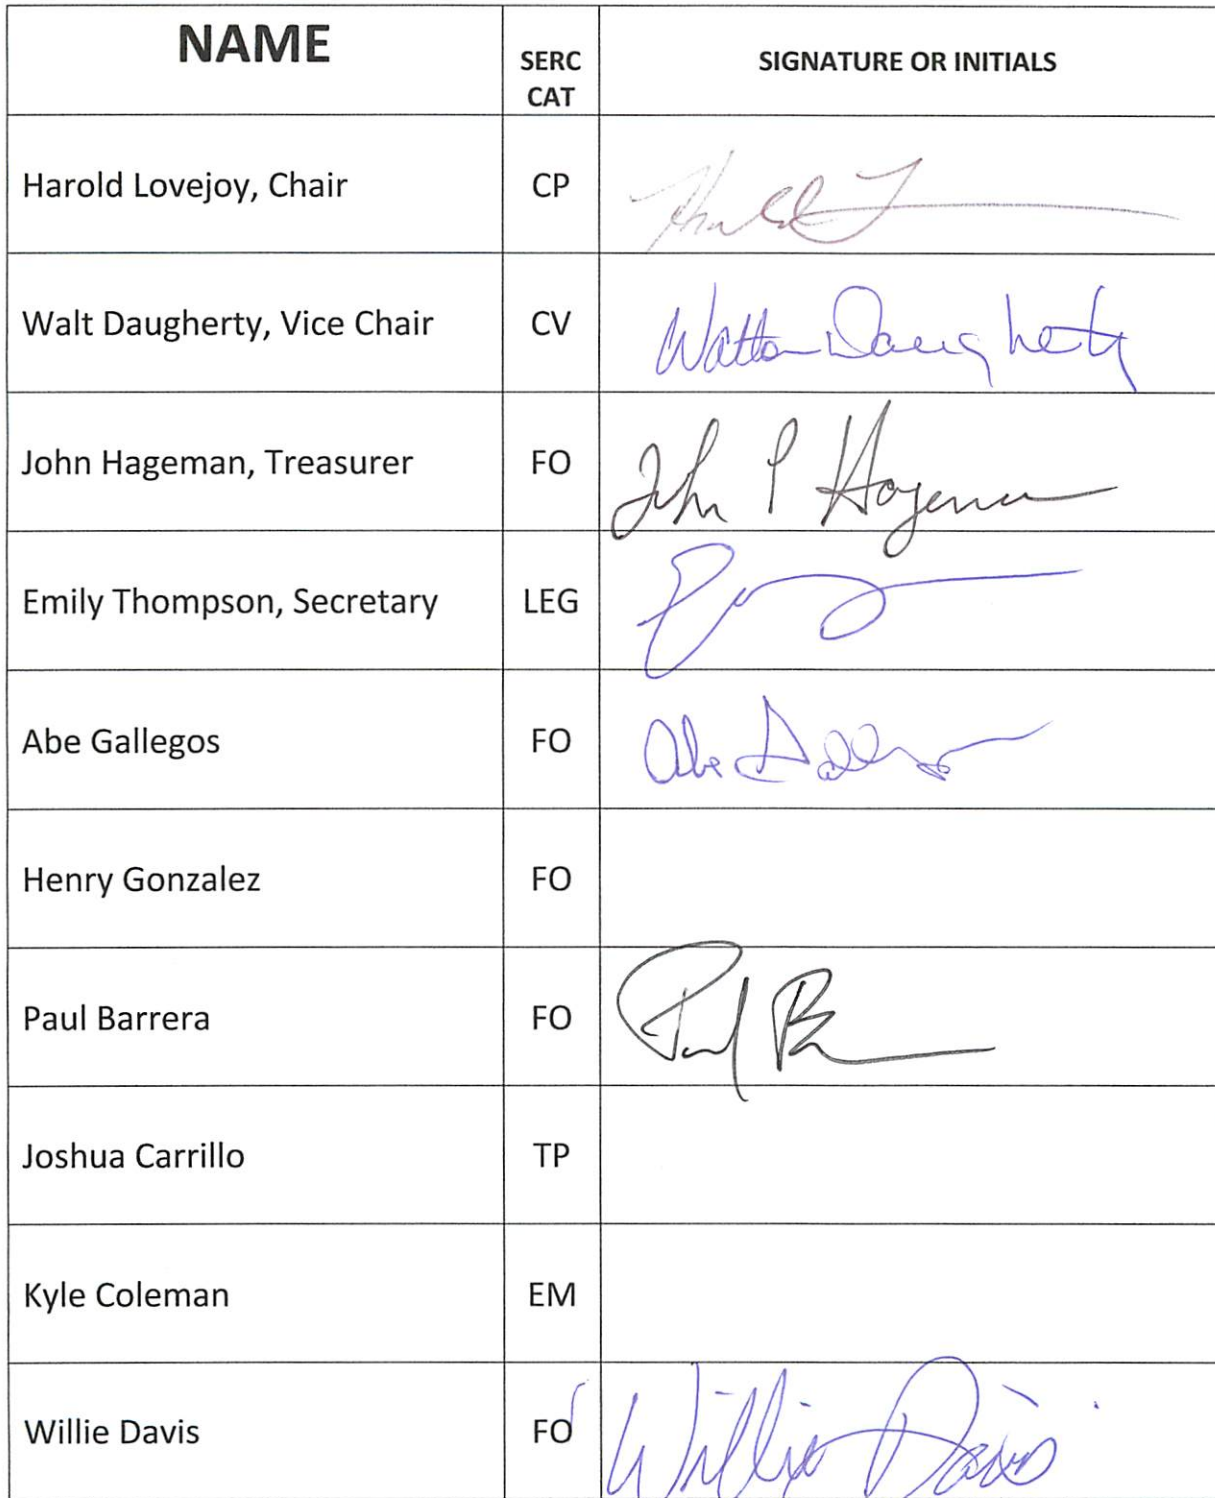 NAME
SERC
CAT
SIGNATURE OR INITIALS
Harold Lovejoy, Chair CP Harold L
Walt Daugherty, Vice Chair CV Walton Daugherty
John Hageman, Treasurer FO John P Hageman
Emily Thompson, Secretary LEG
Abe Gallegos FO Abe Gallegos
Henry Gonzalez FO
Paul Barrera FO Paul B
Joshua Carrillo TP
Kyle Coleman EM
Willie Davis FO Willie Davis